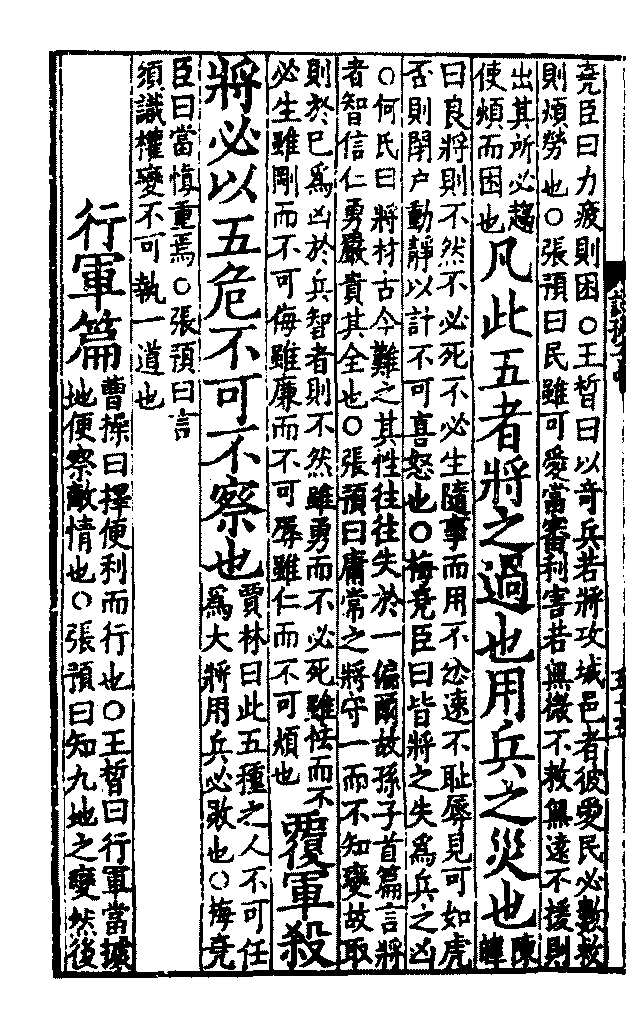 堯臣曰力疲則困○王晳曰以奇兵若將攻城邑者彼愛民必數救
則煩勞也○張預曰民雖可愛當審利害若無微不救無遠不援則
出其所必趨
使煩而困也
凡此五者將之過也用兵之災也
陳
皥
曰良將則不然不必死不必生隨事而用不忿速不恥辱見可如虎
否則閉户動靜以計不可喜怒也○梅堯臣曰皆將之失爲兵之凶
○何氏曰將材古今難之其性往往失於一偏爾故孫子首篇言將
者智信仁勇嚴貴其全也○張預曰庸常之將守一而不知變故取
則於己爲凶於兵智者則不然雖勇而不必死雖怯而不
必生雖剛而不可侮雖廉而不可辱雖仁而不可煩也
覆軍殺
將必以五危不可不察也
賈林曰此五種之人不可任
爲大將用兵必敗也○梅堯
臣曰當慎重焉○張預曰言
須識權變不可執一道也
行軍篇
曹操曰擇便利而行也○王晳曰行軍當據
地便察敵情也○張預曰知九地之變然後